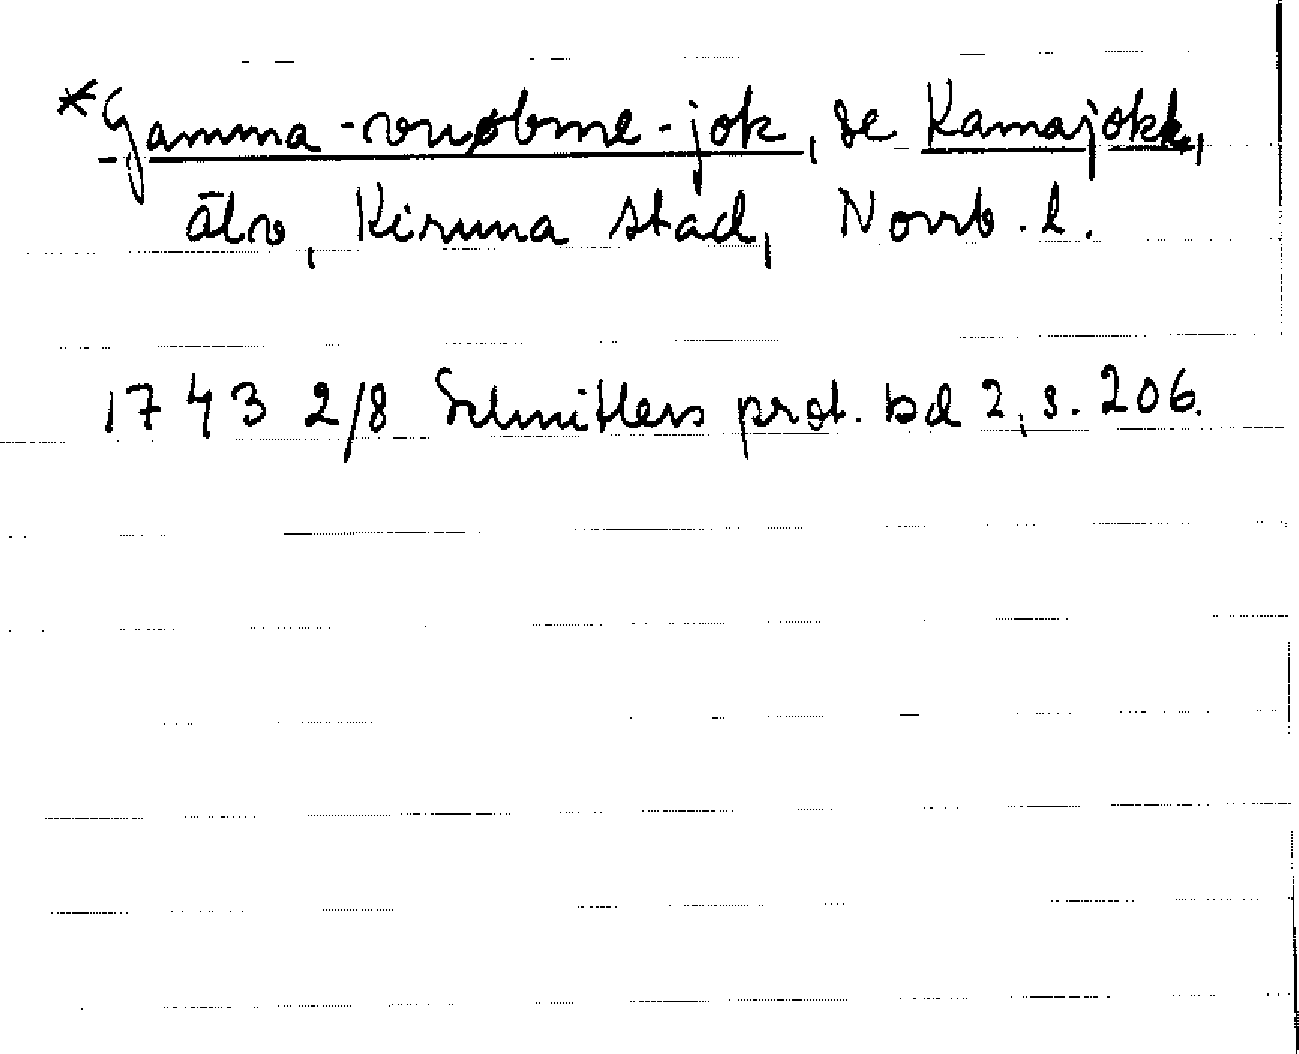 *Gamma-vuøbme-jok, se Kamajåkk,
älv, Kiruna stad, Norrb. l.
1743 2/8 Schnitlers prot. bd 2, s. 206.